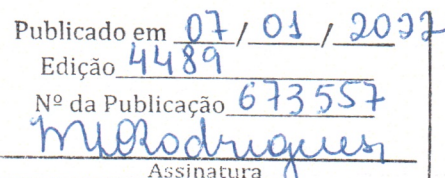 Publicado em 07/ 01 / 2022
Edição 4489
Nº da Publicação 673557
Assinatura